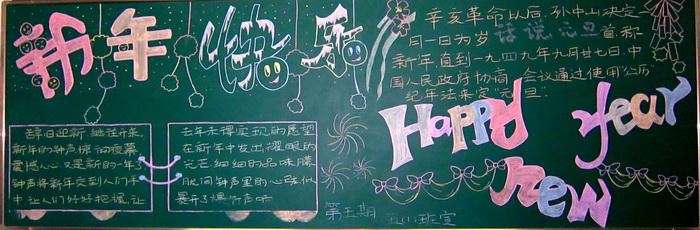 新年快乐
辞旧迎新,继往开来,
新年的钟声惊
震憾人心又是新的一年了
钟声将新年交到人们手
中让人们好好把握,让
去年未得实现的愿望
在新年中发出耀眼的
光芒细细的品味腾
钟声里的心
展开了爆竹声
辛亥革命以后,孙中山决定
月一日为岁 话说元旦 首称
新年直到一九四九年九月廿七日,中
国人民政府协商 会议通过使用"公历"
纪年法来定"元旦"
Happy year
new
第五期 五(1)班宣